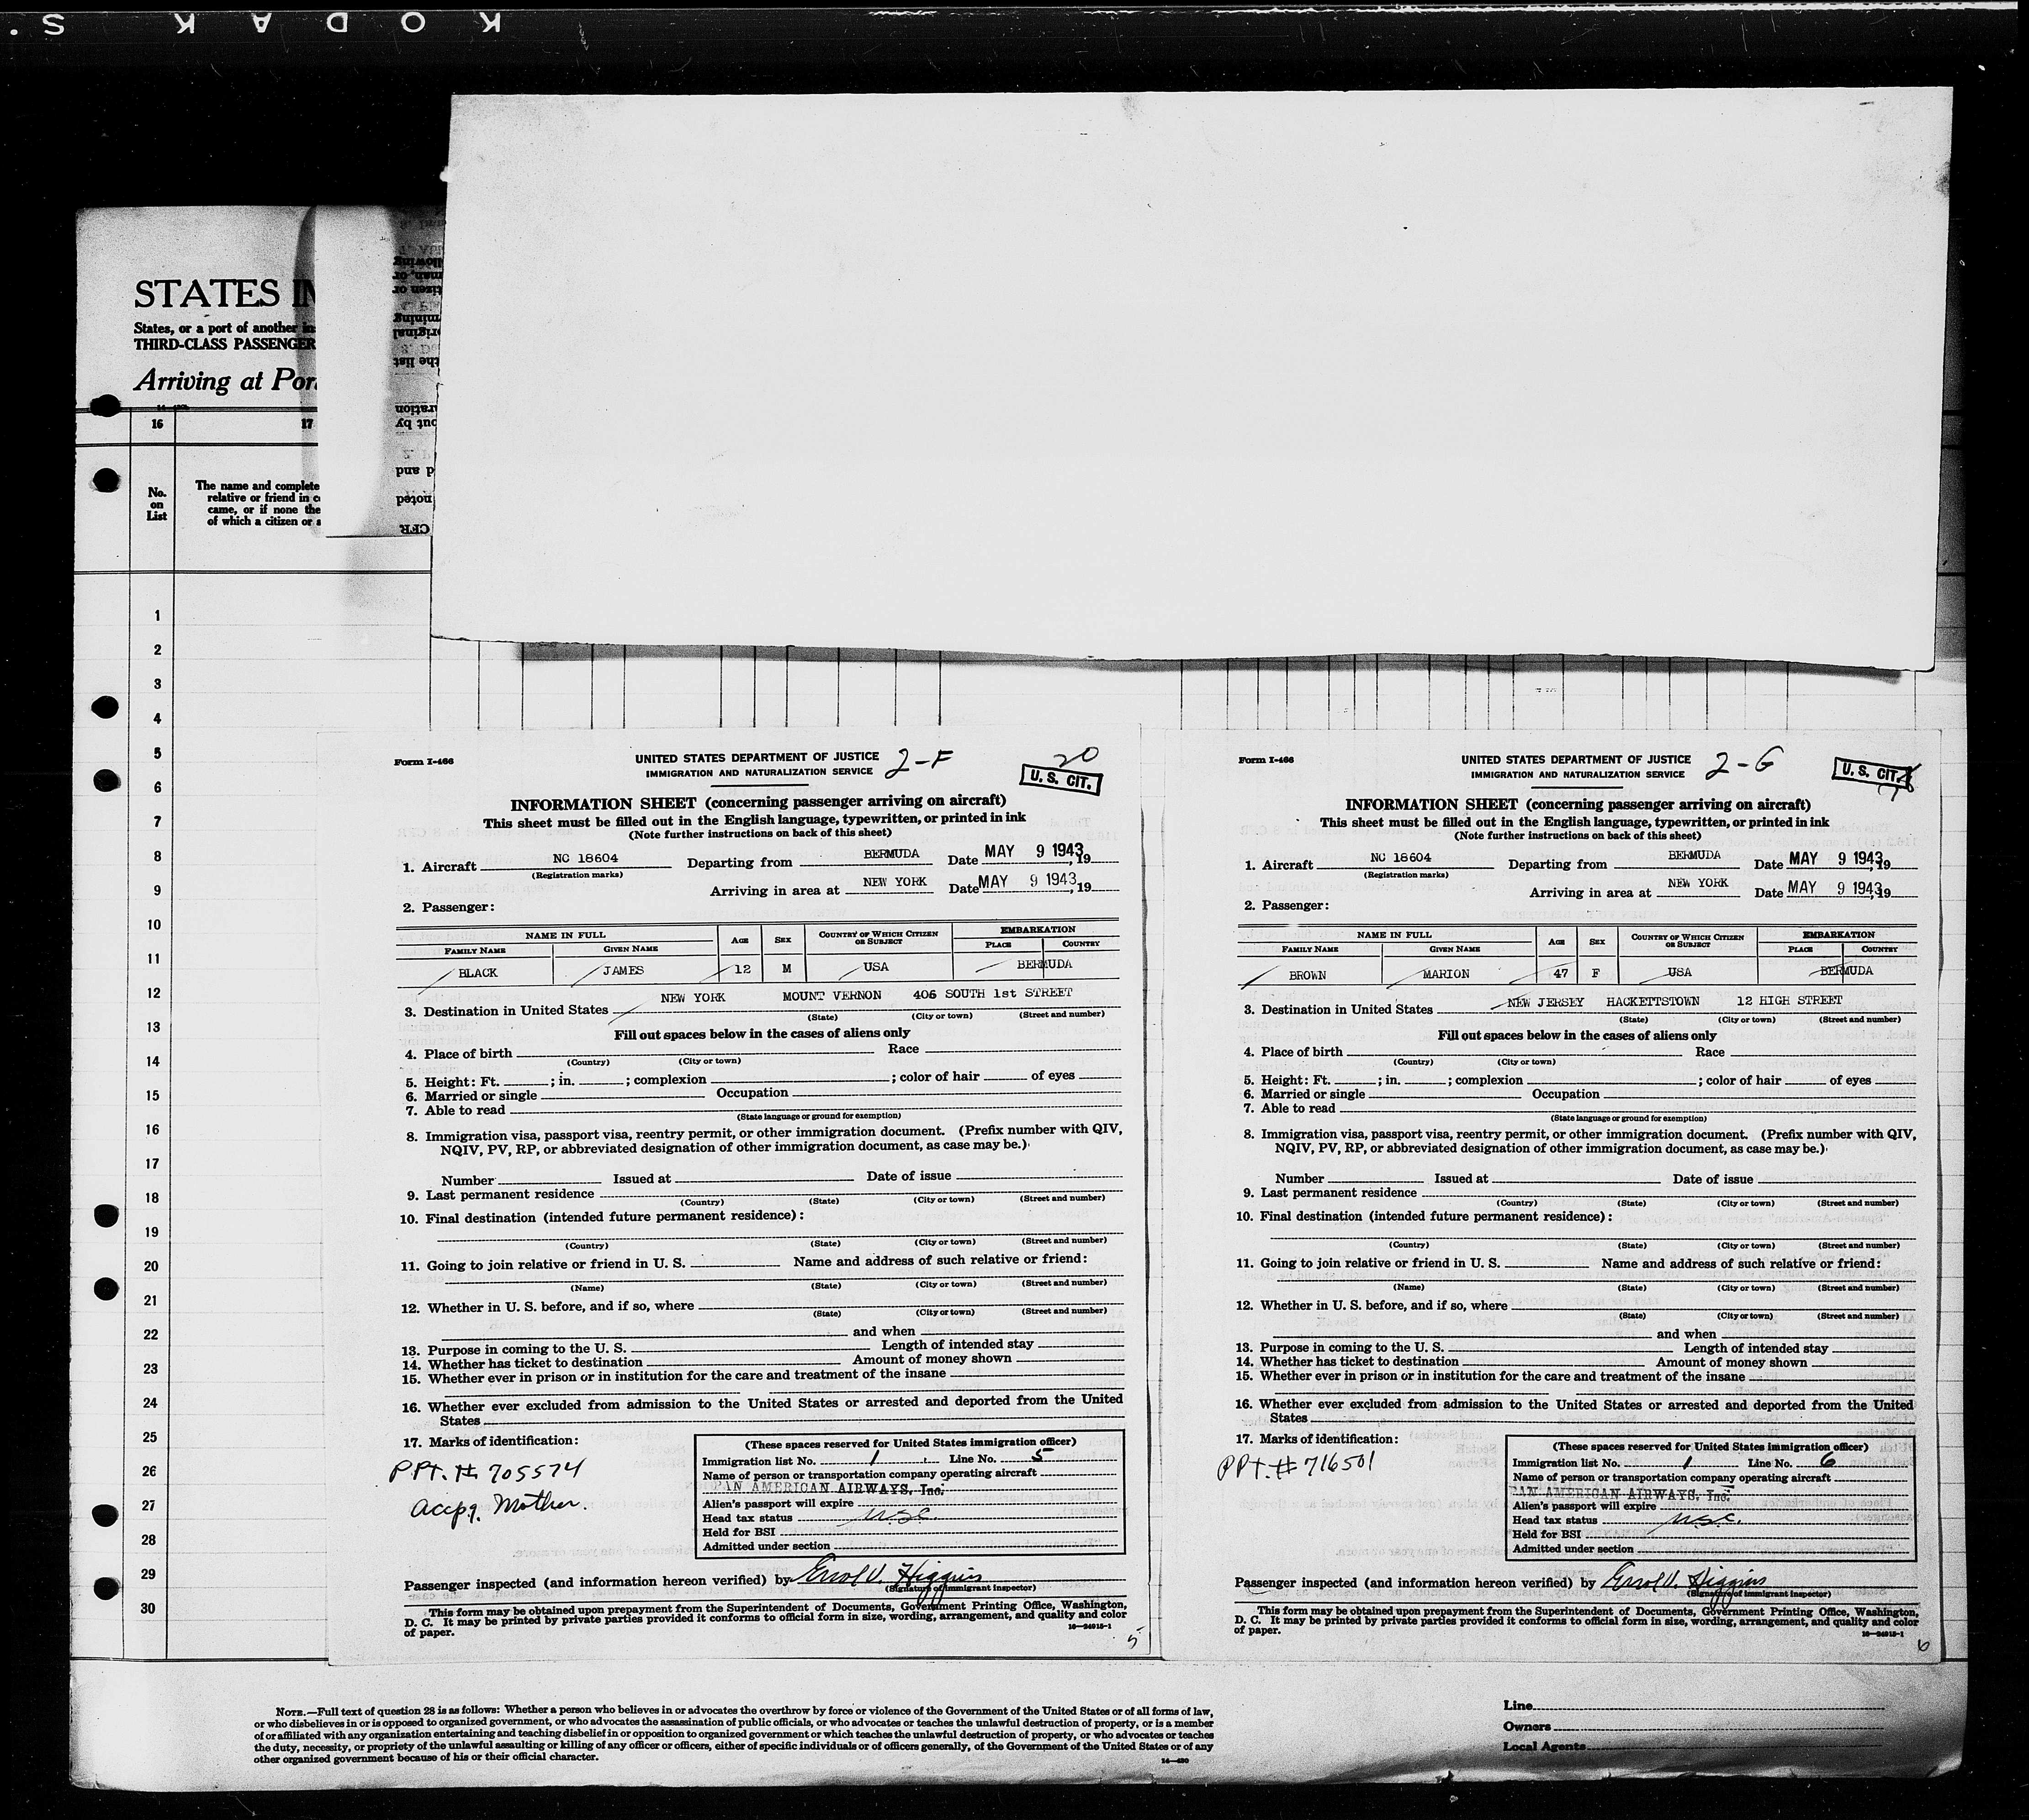 K O D A K S.
STATES
States, or a port of another
THIRD-CLASS PASSENGER
Arriving at Por
16 17
No. on List
The name and complete
relative or friend in
came, or if none the
of which a citizen or
1
2
3
4
5
6
7
8
9
10
11
12
13
14
15
16
17
18
19
20
21
22
23
24
25
26
27
28
29
30
Form I-466
UNITED STATES DEPARTMENT OF JUSTICE
IMMIGRATION AND NATURALIZATION SERVICE
2-F
20
U. S. CIT.
INFORMATION SHEET (concerning passenger arriving on aircraft)
This sheet must be filled out in the English language, typewritten, or printed in ink
(Note further instructions on back of this sheet)
1. Aircraft NC 18604 Departing from BERMUDA Date MAY 9 1943, 19
(Registration marks)
Arriving in area at NEW YORK Date MAY 9 1943, 19
2. Passenger:
NAME IN FULL AGE SEX COUNTRY OF WHICH CITIZEN OR SUBJECT EMBARKATION
FAMILY NAME GIVEN NAME PLACE COUNTRY
BLACK JAMES 12 M USA BERMUDA
3. Destination in United States NEW YORK MOUNT VERNON 406 SOUTH 1st STREET
(State) (City or town) (Street and number)
Fill out spaces below in the cases of aliens only
4. Place of birth Race
(Country) (City or town)
5. Height: Ft. ; in. ; complexion ; color of hair of eyes
6. Married or single Occupation
7. Able to read
(State language or ground for exemption)
8. Immigration visa, passport visa, reentry permit, or other immigration document. (Prefix number with QIV,
NQIV, PV, RP, or abbreviated designation of other immigration document, as case may be.)
Number Issued at Date of issue
9. Last permanent residence
(Country) (State) (City or town) (Street and number)
10. Final destination (intended future permanent residence):
(Country) (State) (City or town) (Street and number)
11. Going to join relative or friend in U. S. Name and address of such relative or friend:
(Name) (State) (City or town) (Street and number)
12. Whether in U. S. before, and if so, where
(State) (City or town) (Street and number)
and when
13. Purpose in coming to the U. S. Length of intended stay
14. Whether has ticket to destination Amount of money shown
15. Whether ever in prison or in institution for the care and treatment of the insane
16. Whether ever excluded from admission to the United States or arrested and deported from the United
States
17. Marks of identification:
PPt. # 705574
Accpg. Mother.
(These spaces reserved for United States immigration officer)
Immigration list No. 1 Line No. 5
Name of person or transportation company operating aircraft
PAN AMERICAN AIRWAYS, Inc.
Alien's passport will expire
Head tax status U.S.C.
Held for BSI
Admitted under section
Passenger inspected (and information hereon verified) by Errol V. Higgins
(Signature of immigrant inspector)
This form may be obtained upon prepayment from the Superintendent of Documents, Government Printing Office, Washington,
D. C. It may be printed by private parties provided it conforms to official form in size, wording, arrangement, and quality and color
of paper.
16—24915-1
5
Form I-466
UNITED STATES DEPARTMENT OF JUSTICE
IMMIGRATION AND NATURALIZATION SERVICE
2-G
U. S. CIT.
INFORMATION SHEET (concerning passenger arriving on aircraft)
This sheet must be filled out in the English language, typewritten, or printed in ink
(Note further instructions on back of this sheet)
1. Aircraft NC 18604 Departing from BERMUDA Date MAY 9 1943, 19
(Registration marks)
Arriving in area at NEW YORK Date MAY 9 1943, 19
2. Passenger:
NAME IN FULL AGE SEX COUNTRY OF WHICH CITIZEN OR SUBJECT EMBARKATION
FAMILY NAME GIVEN NAME PLACE COUNTRY
BROWN MARION 47 F USA BERMUDA
3. Destination in United States NEW JERSEY HACKETTSTOWN 12 HIGH STREET
(State) (City or town) (Street and number)
Fill out spaces below in the cases of aliens only
4. Place of birth Race
(Country) (City or town)
5. Height: Ft. ; in. ; complexion ; color of hair of eyes
6. Married or single Occupation
7. Able to read
(State language or ground for exemption)
8. Immigration visa, passport visa, reentry permit, or other immigration document. (Prefix number with QIV,
NQIV, PV, RP, or abbreviated designation of other immigration document, as case may be.)
Number Issued at Date of issue
9. Last permanent residence
(Country) (State) (City or town) (Street and number)
10. Final destination (intended future permanent residence):
(Country) (State) (City or town) (Street and number)
11. Going to join relative or friend in U. S. Name and address of such relative or friend:
(Name) (State) (City or town) (Street and number)
12. Whether in U. S. before, and if so, where
(State) (City or town) (Street and number)
and when
13. Purpose in coming to the U. S. Length of intended stay
14. Whether has ticket to destination Amount of money shown
15. Whether ever in prison or in institution for the care and treatment of the insane
16. Whether ever excluded from admission to the United States or arrested and deported from the United
States
17. Marks of identification:
PPt. # 716501
(These spaces reserved for United States immigration officer)
Immigration list No. 1 Line No. 6
Name of person or transportation company operating aircraft
PAN AMERICAN AIRWAYS, Inc.
Alien's passport will expire
Head tax status U.S.C.
Held for BSI
Admitted under section
Passenger inspected (and information hereon verified) by Errol V. Higgins
(Signature of immigrant inspector)
This form may be obtained upon prepayment from the Superintendent of Documents, Government Printing Office, Washington,
D. C. It may be printed by private parties provided it conforms to official form in size, wording, arrangement, and quality and color
of paper.
16—24915-1
6
NOTE.—Full text of question 28 is as follows: Whether a person who believes in or advocates the overthrow by force or violence of the Government of the United States or of all forms of law,
or who disbelieves in or is opposed to organized government, or who advocates the assassination of public officials, or who advocates or teaches the unlawful destruction of property, or is a member
of or affiliated with any organization entertaining and teaching disbelief in or opposition to organized government or which teaches the unlawful destruction of property, or who advocates or teaches
the duty, necessity, or propriety of the unlawful assaulting or killing of any officer or officers, either of specific individuals or of officers generally, of the Government of the United States or of any
other organized government because of his or their official character.
14—430
Line
Owners
Local Agents